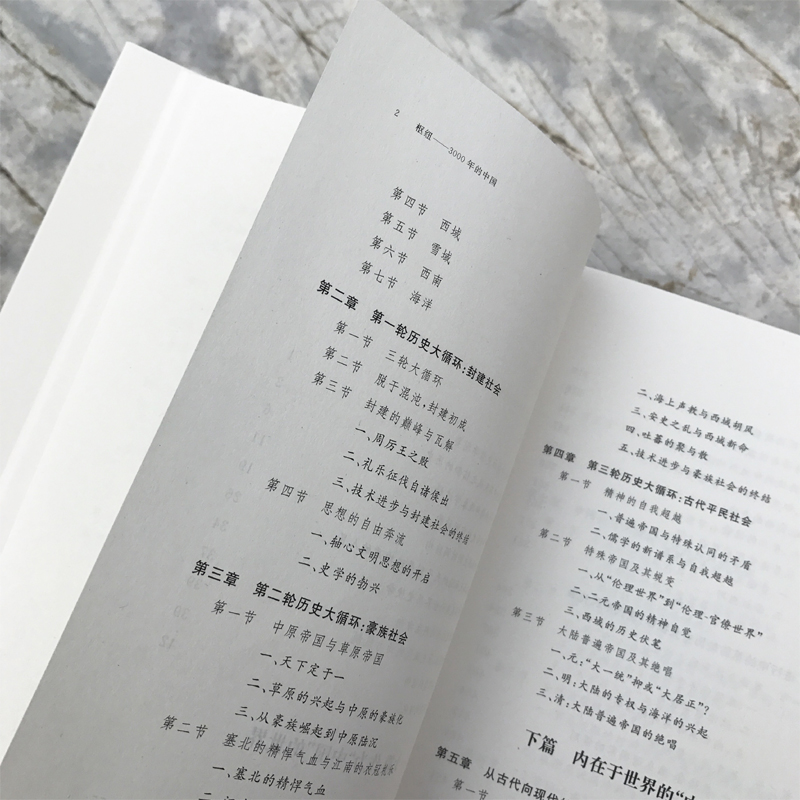 2 枢纽——3000年的中国
第四节 西域
第五节 雪域
第六节 西南
第七节 海洋
第二章 第一轮历史大循环:封建社会
第一节 三轮大循环
第二节 脱于混沌,封建初成
第三节 封建的巅峰与瓦解
一、周厉王之败
二、礼乐征伐自诸侯出
三、技术进步与封建社会的终结
第四节 思想的自由奔流
一、轴心文明思想的开启
二、史学的勃兴
第三章 第二轮历史大循环:豪族社会
第一节 中原帝国与草原帝国
一、天下定于一
二、草原的兴起与中原的豪族化
三、从豪族崛起到中原陆沉
第二节 塞北的精悍气血与江南的衣冠
一、塞北的精悍气血
二、海上声教与西域胡风
三、安史之乱与西域新命
四、吐蕃的聚与散
五、技术进步与豪族社会的终结
第四章 第三轮历史大循环:古代平民社会
第一节 精神的自我超越
一、普遍帝国与特殊认同的矛盾
二、儒学的新谱系与自我超越
第二节 特殊帝国及其蜕变
一、从“伦理世界”到“伦理·官僚世界”
二、二元帝国的精神自觉
三、西域的历史伏笔
第三节 大陆普遍帝国及其绝唱
一、元:“大一统”抑或“大居正”?
二、明:大陆的专权与海洋的兴起
三、清:大陆普遍帝国的绝唱
下篇 内在于世界的“
第五章 从古代向现代
第一节